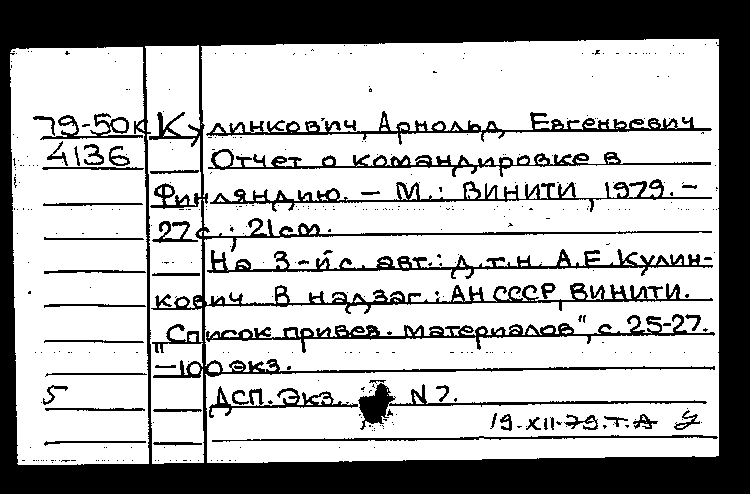 79-50к Кулинкович, Арнольд Евгеньевич
4136 Отчет о командировке в
Финляндию. – М.: ВИНИТИ, 1979. –
27 с.; 21 см.
На 3-й с. авт.: д.т.н. А.Е. Кулин-
кович. В надзаг.: АН СССР, ВИНИТИ.
"Список привез. материалов", с. 25-27.
– 100 экз.
5 ДСП. Экз. N 7.
19.XII.79. Т.А